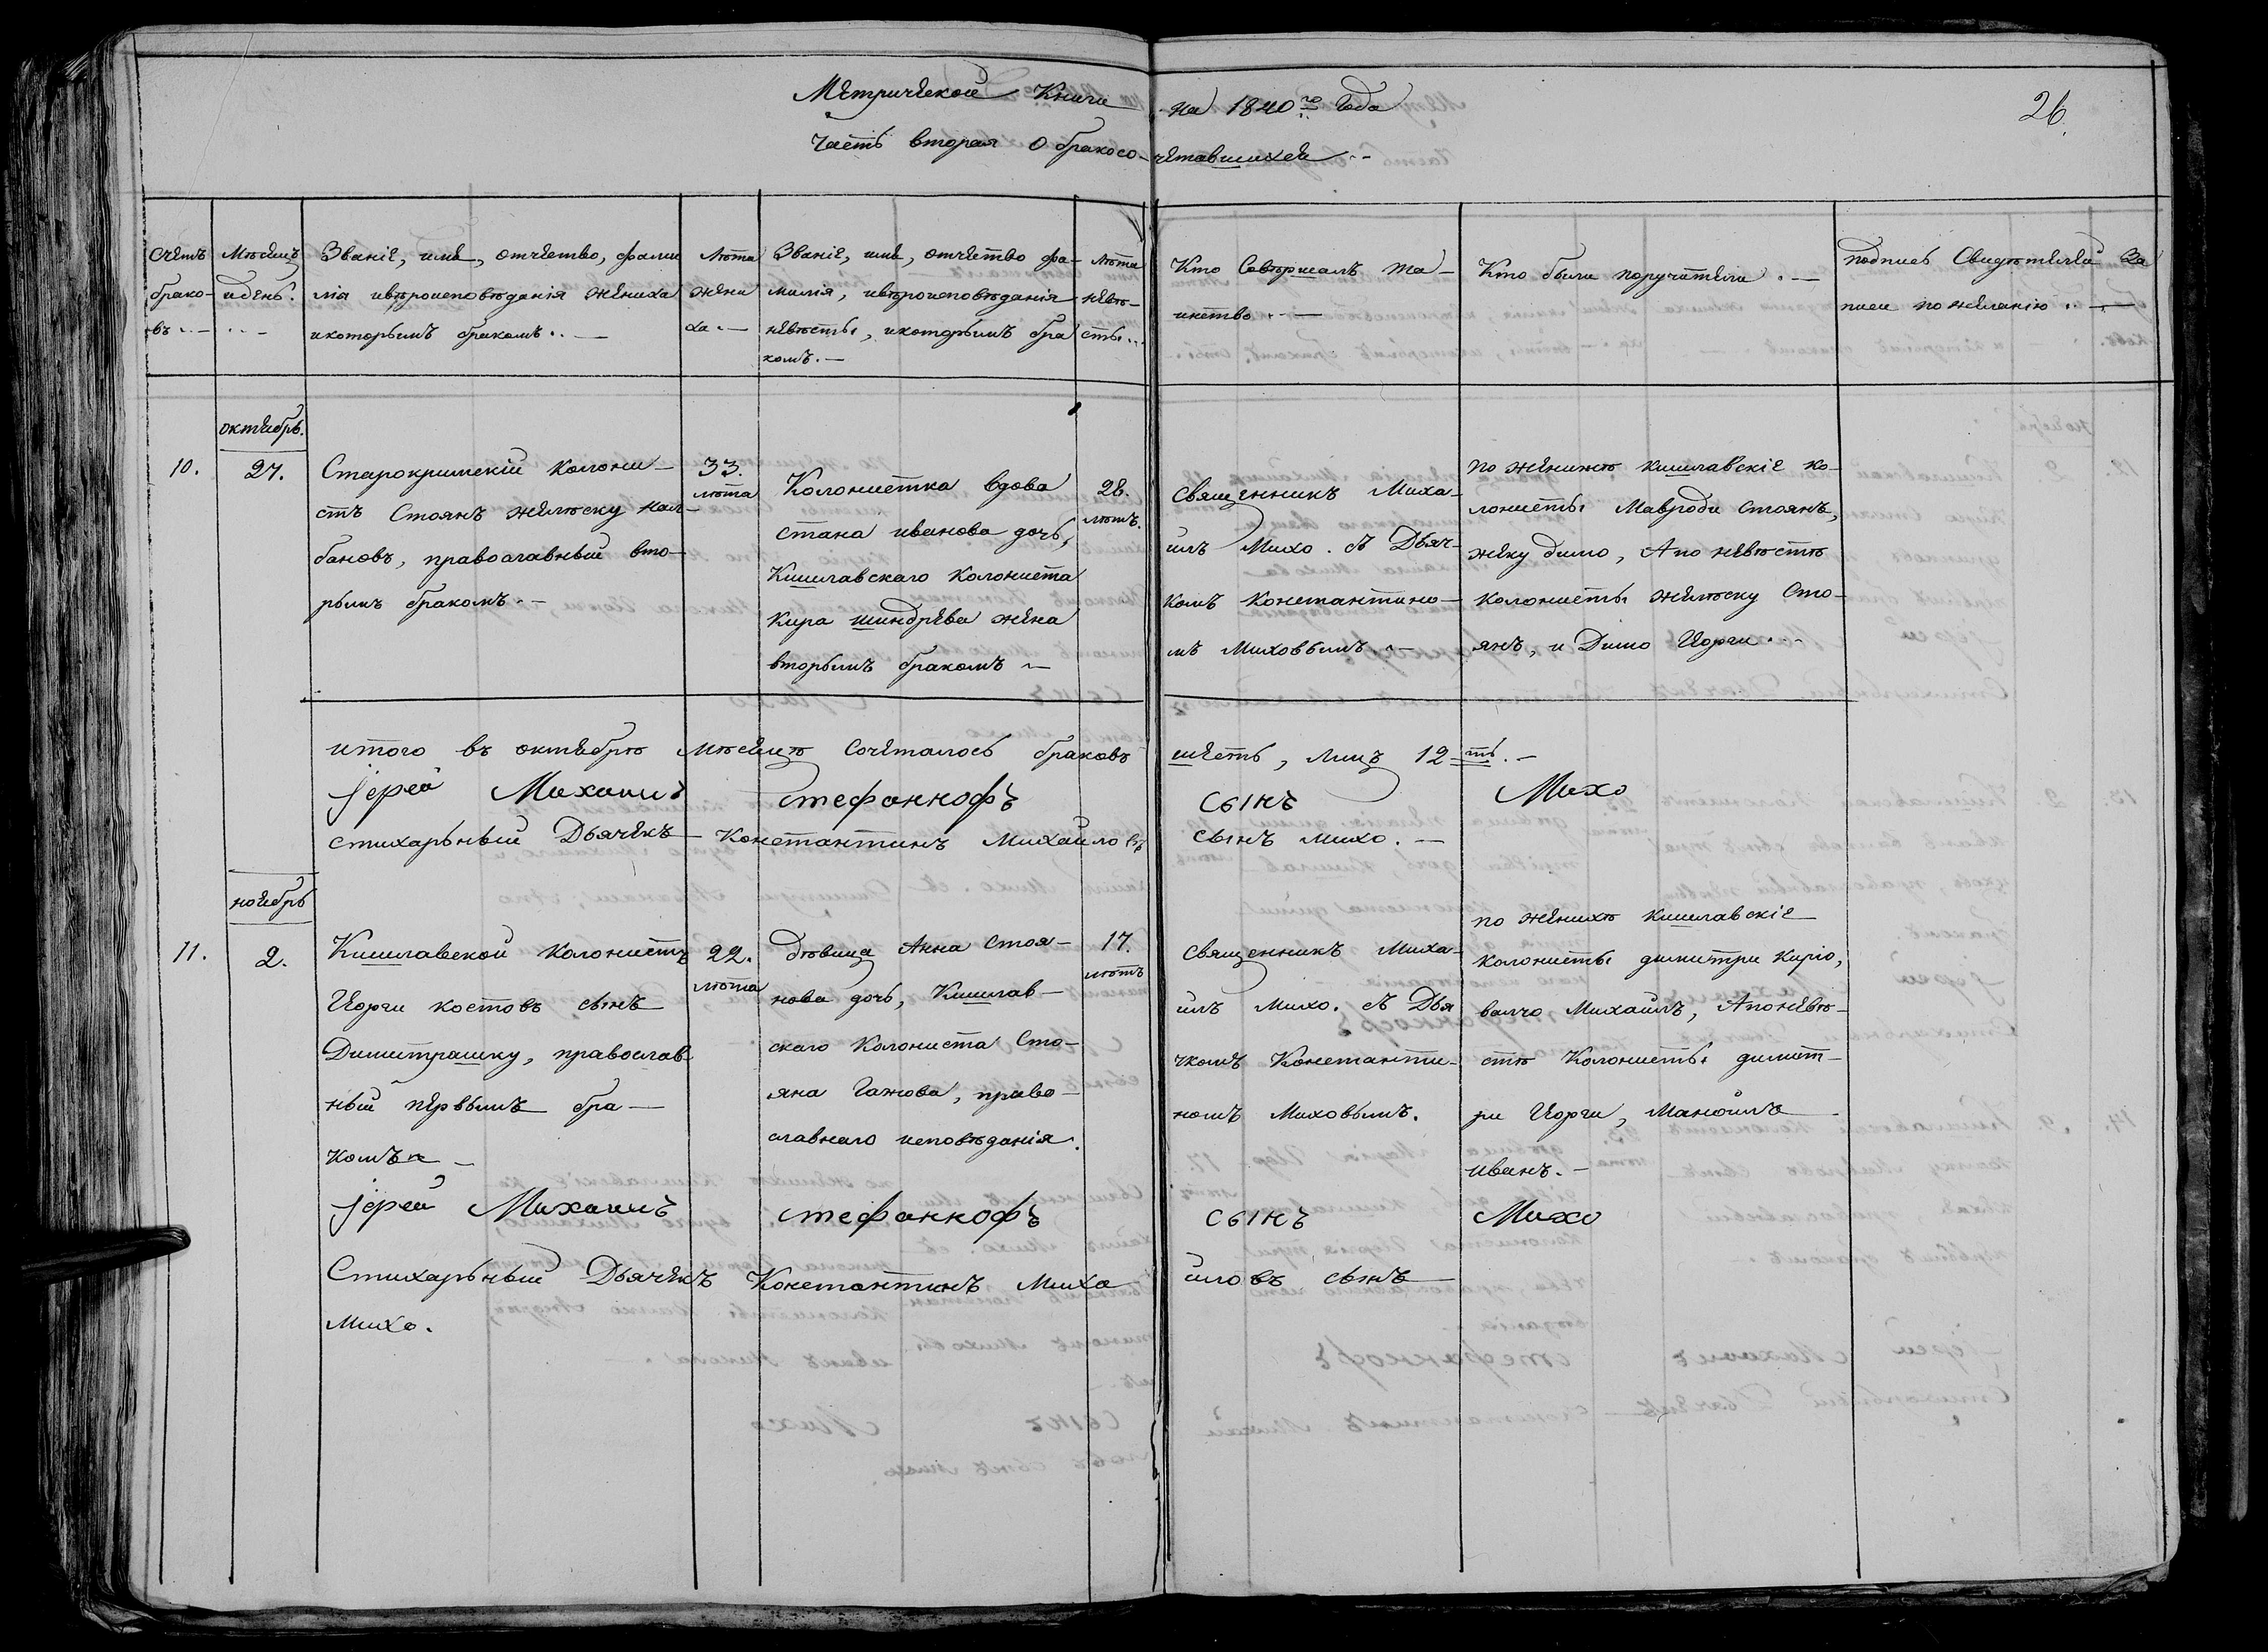 Метрической Книги на 1840го Года
26.
часть вторая о бракосо-четавшихся
Счетъ
брако-
въ
Месяцъ
и день.
Званіе, имя, отчество, фами
лія и вероисповѣданія жениха
и которымъ бракомъ
Лѣта
жени
ха
Званіе, имя, отчество фа-
милія, и вѣроисповѣданія
невѣсты, и которымъ бра
комъ.
Лѣта
невѣ-
сты
Кто Совершалъ та-
инство
Кто были поручители
подпись Свидѣтелей За
писи по желанію
октябрь.
10.
27.
Старокримскій колони-
стъ Стоянъ желѣску кал-
бановъ, православный вто-
рымъ бракомъ
33.
лѣта
Колонистка вдова
стана иванова дочь,
Кишлавскаго колониста
Кира шиндрева жена
вторымъ бракомъ
28.
лѣтъ.
священникъ Миха-
илъ Михо. съ Дьяч-
комъ константино-
мъ Миховымъ.
по женихѣ кишлавскіе ко-
лонисты Мавроди стоянъ,
жеку димо, А по невѣстѣ
колонисты желѣску Сто-
янъ, и Димо Иорги
итого въ октябрѣ мѣсяцѣ сочеталось браковъ шесть, лицъ 12ть.
іерей Михаилъ стефанкофъ сынъ Михо
стихарьный Дьячекъ Константинъ Михайловъ сынъ михо.
ноябрь
11.
2.
Кишлавской колонистъ
Иорги костовъ сынъ
Димитрашку, православ-
ный первымъ бра-
комъ
22.
лѣта
дѣвица Анна Стоя-
нова дочь, Кишлав-
скаго колониста Сто-
яна Гажова, право-
славнаго исповѣданія.
17.
лѣтъ
священникъ Миха-
илъ Михо. съ Дья
чкомъ Константи-
номъ Миховымъ.
по женихѣ кишлавскіе
колонисты димитри киріо,
валчо Михаилъ, А по невѣ-
стѣ Колонисты димит-
ри Иорги, Маноилъ
иванъ.
іерей Михаилъ стефанкофъ сынъ Михо
Стихарьный Дьячекъ Константинъ Миха иловъ сынъ
Михо.